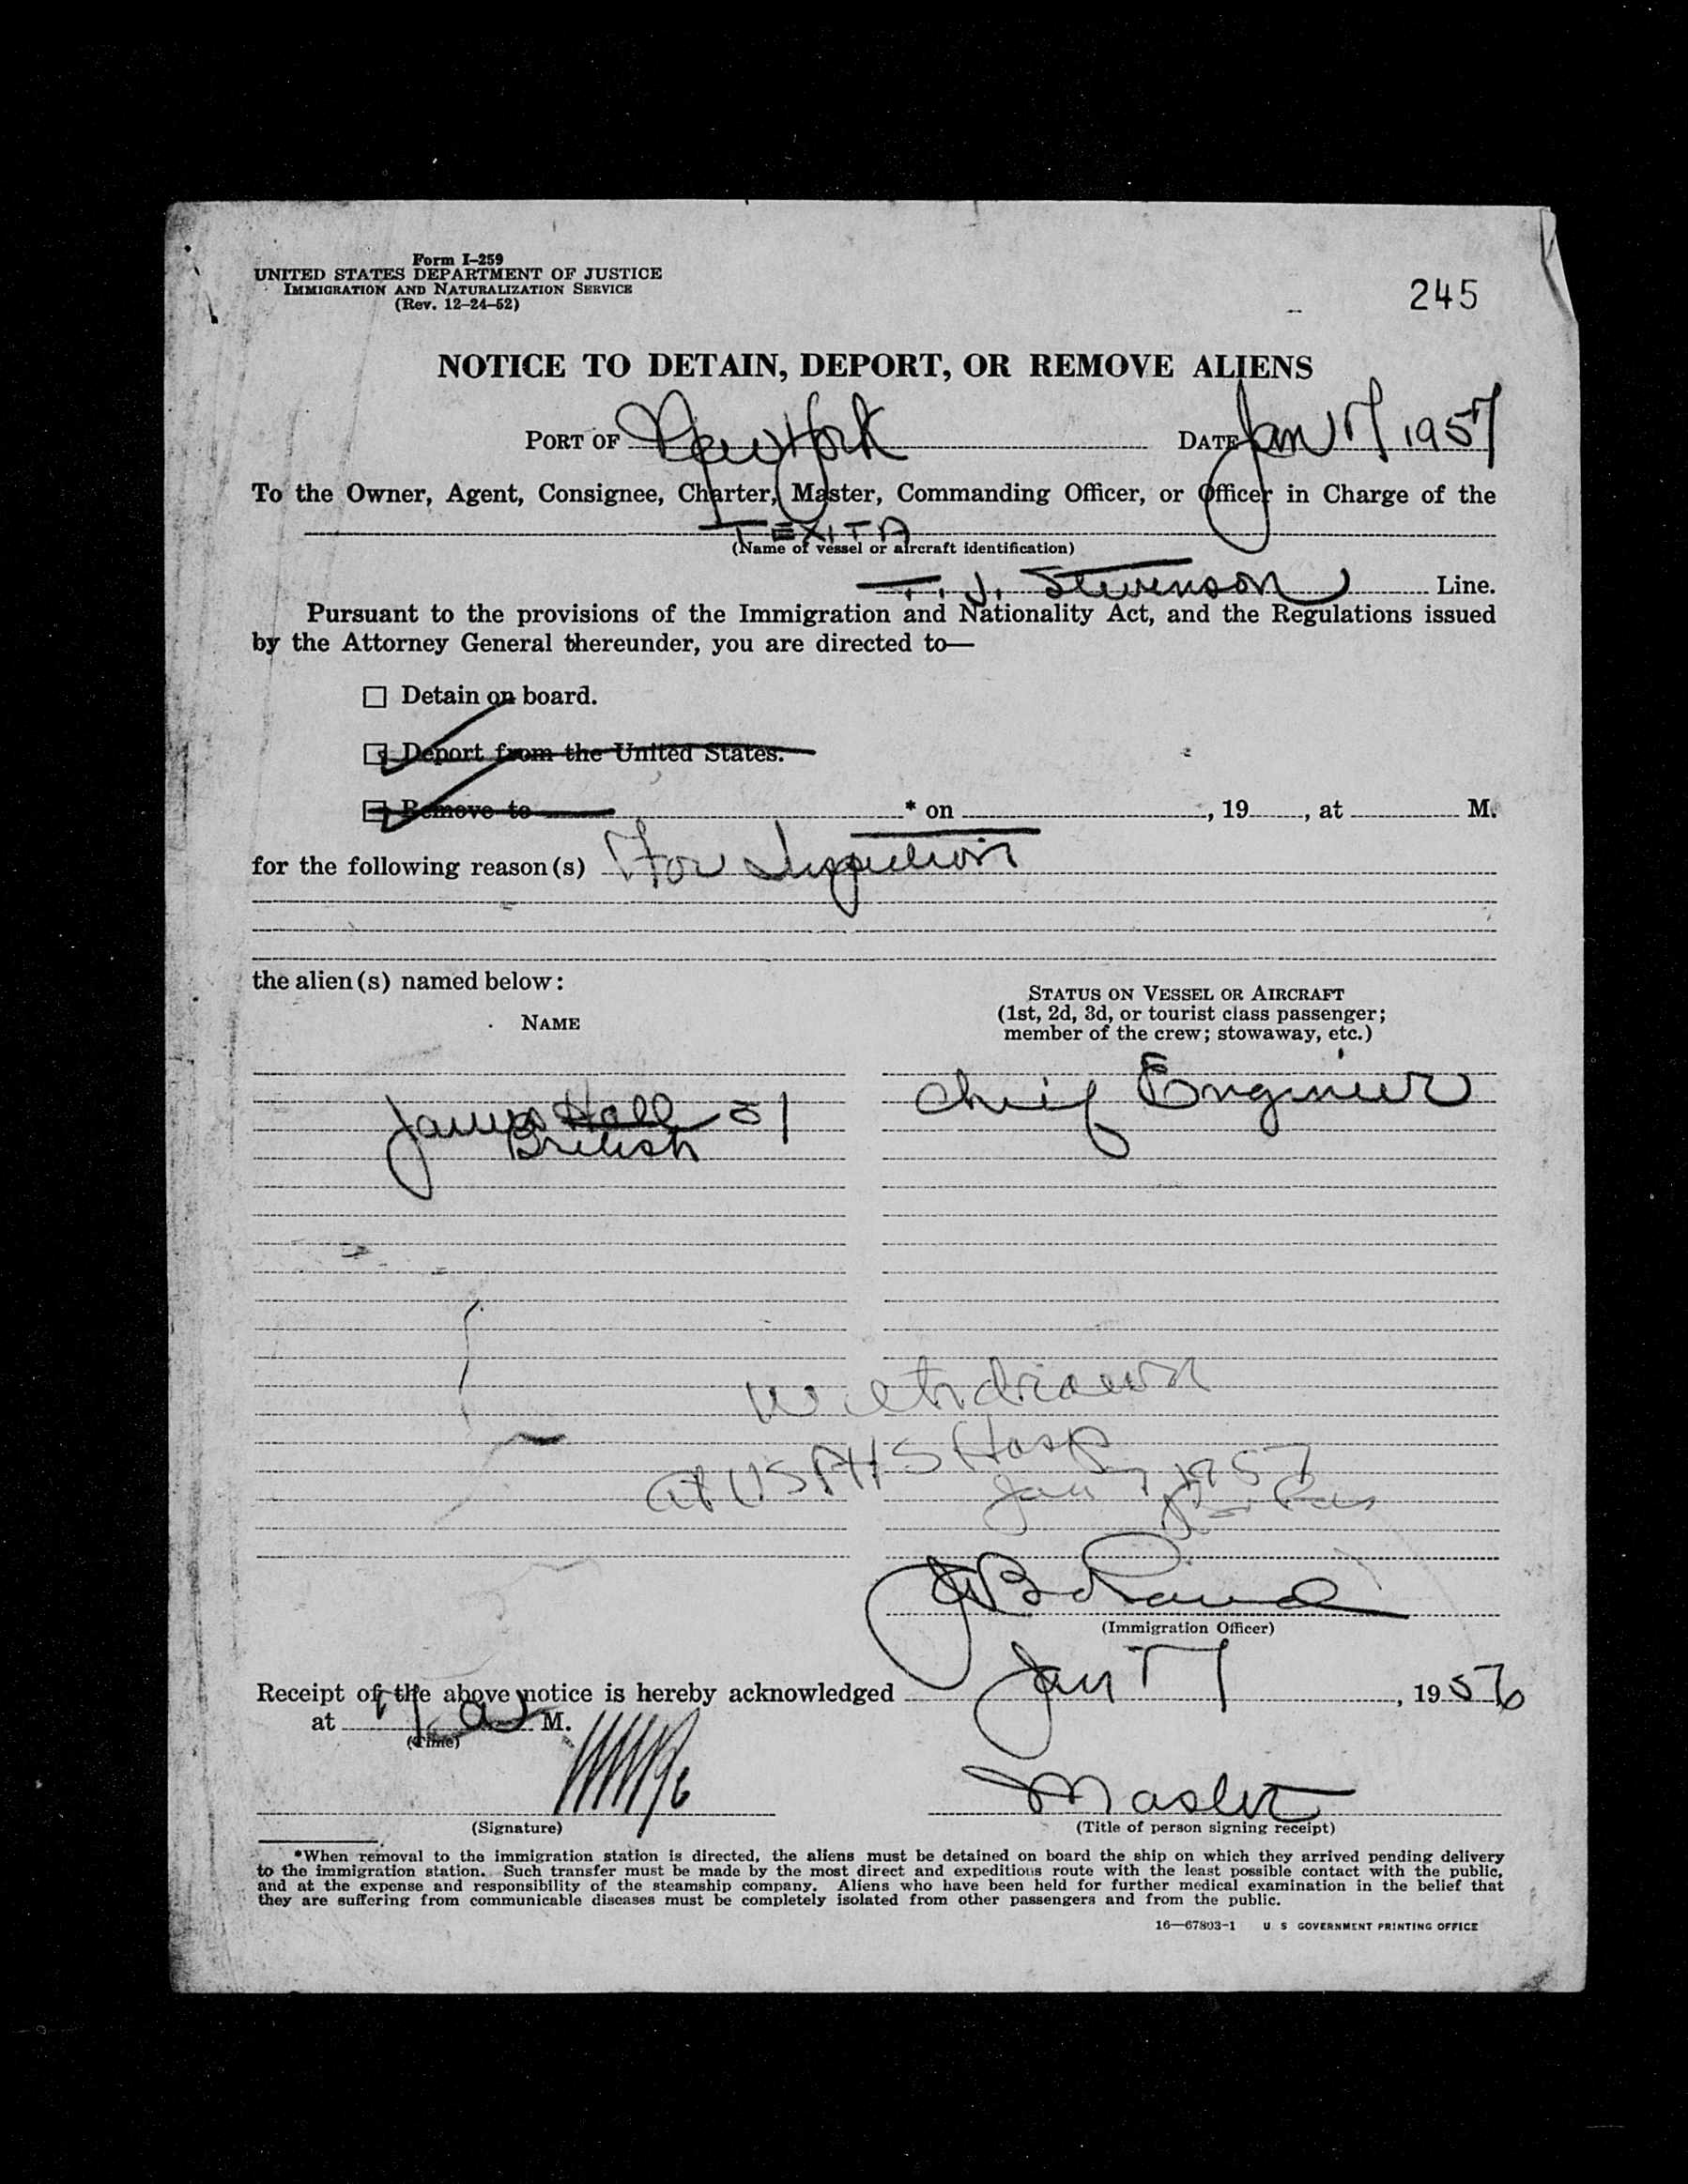 Form I-259
UNITED STATES DEPARTMENT OF JUSTICE
IMMIGRATION AND NATURALIZATION SERVICE
(Rev. 12-24-52)
245
NOTICE TO DETAIN, DEPORT, OR REMOVE ALIENS
PORT OF New York DATE Jan 17 1957
To the Owner, Agent, Consignee, Charter, Master, Commanding Officer, or Officer in Charge of the
TEXITA
(Name of vessel or aircraft identification)
T. J. Stevenson Line.
Pursuant to the provisions of the Immigration and Nationality Act, and the Regulations issued
by the Attorney General thereunder, you are directed to—
☐ Detain on board.
☐ Deport from the United States.
☐ Remove to * on , 19 , at M.
for the following reason(s) For Inspection
the alien(s) named below:
NAME
STATUS ON VESSEL OR AIRCRAFT
(1st, 2d, 3d, or tourist class passenger;
member of the crew; stowaway, etc.)
James Hall 51 Chief Engineer
British
Withdrawn
at USPHS Hosp
Jan 1957
(Immigration Officer)
Receipt of the above notice is hereby acknowledged Jan 17, 1956
at M.
(Time)
Master
(Signature) (Title of person signing receipt)
*When removal to the immigration station is directed, the aliens must be detained on board the ship on which they arrived pending delivery
to the immigration station. Such transfer must be made by the most direct and expeditious route with the least possible contact with the public,
and at the expense and responsibility of the steamship company. Aliens who have been held for further medical examination in the belief that
they are suffering from communicable diseases must be completely isolated from other passengers and from the public.
16—67803-1 U S GOVERNMENT PRINTING OFFICE